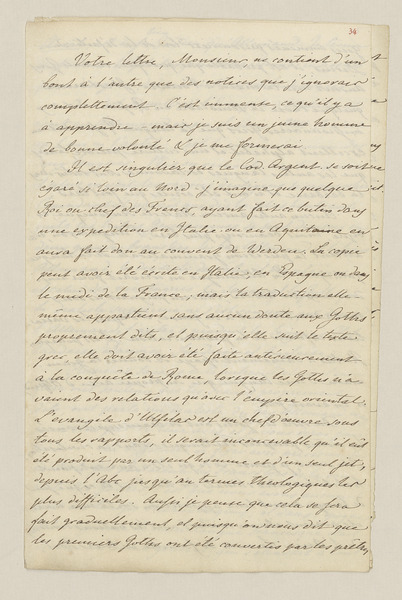 34
Votre lettre, Monsieur, ne contient d'un
bout à l'autre que des notices que j'ignorais
complettement. C'est immense, ce qu'il y a
à apprendre – mais je suis un jeune homme
de bonne volonté & je me formerai
Il est singulier que le Cod. Argent. se soit
égaré si loin au Nord. j'imagine que quelque
Roi ou chef des Francs, ayant fait ce butin dans
une expedition en Italie ou en Aquitaine en
aura fait don au couvent de Werden. La copie
peut avoir été écrite en Italie, en Espagne ou dans
le midi de la France; mais la traduction elle-
même appartient sans aucun doute aux Goths
proprement dits, et puisqu'elle suit le texte
grec, elle doit avoir été faite antérieurement
à la conquête de Rome, lorsque les Goths n'a
vaient des relations qu'avec l'empire oriental.
L'evangile d'Ulfilas est un chef d'œuvre sous
tous les rapports, il serait inconcevable qu'il eût
été produit par un seul homme et d'un seul jet,
depuis l'Abc jusqu'au termes theologiques les
plus difficiles. Aussi je pense que cela se sera
fait graduellement, et puisqu'on nous dit que
les premiers Goths ont été convertis par les prêtres